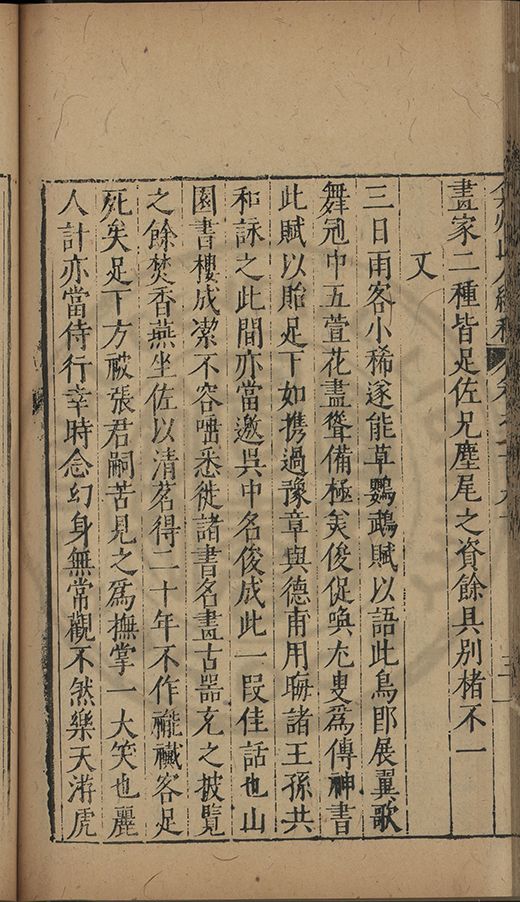 弇州山人續稿
畫家二種皆足佐兄麈尾之資餘具別楮不一
又
三日雨客小稀遂能草鸚鵡賦以語此鳥卽展翼歌
舞冠中五萱花盡聳備極美俊促喚尤叟爲傳神書
此賦以貽足下如携過豫章與德甫用晦諸王孫共
和詠之此間亦當邀吳中名俊成此一段佳話也山
園書樓成潔不容唾悉徙諸書名畫古器充之披覽
之餘焚香燕坐佐以清茗得二十年不作襱襶客足
死矣足下方被張君嗣苦見之爲撫掌一大笑也麗
人計亦當侍行幸時念幻身無常觀不然樂天游虎